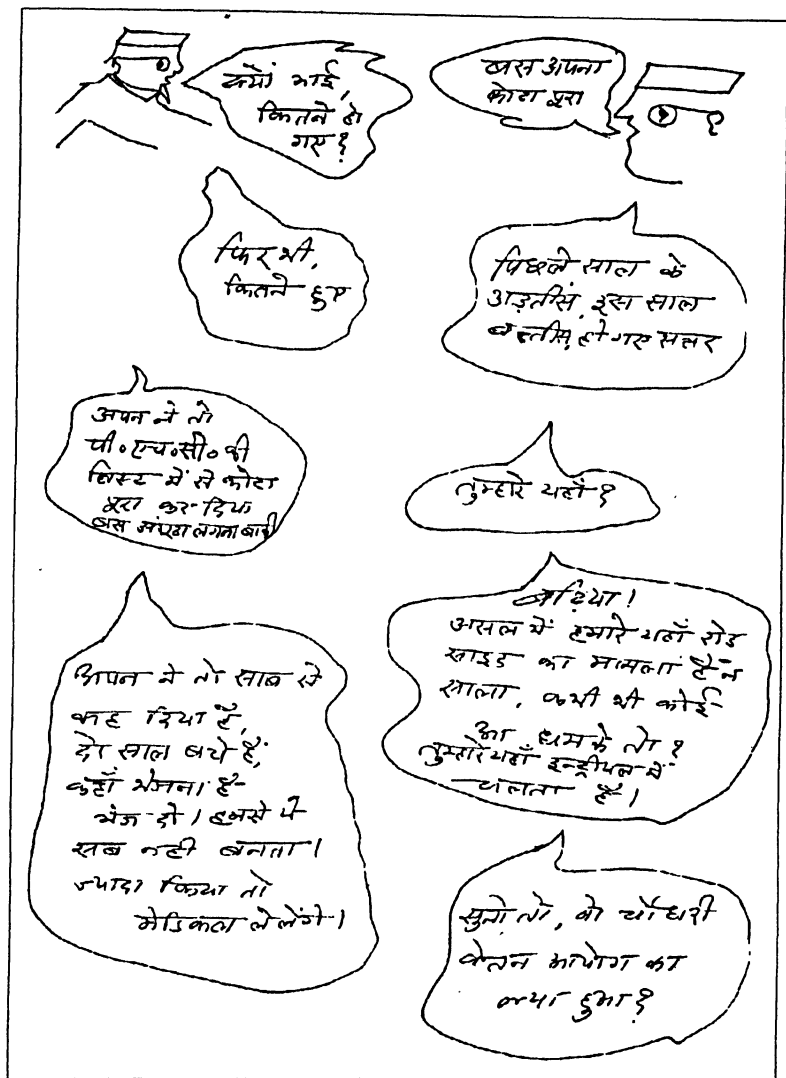 क्यों भाई,
कितने हो
गए?
बस अपना
कोटा पूरा
फिर भी,
कितने हुए
पिछले साल के
अड़तीस, इस साल
बत्तीस, हो गए सत्तर
अपन ने तो
पी॰एच॰सी॰ की
लिस्ट में से कोटा
पूरा कर दिया
बस अंगूठा लगना बाकी
तुम्हारे यहाँ?
बढ़िया!
असल में हमारे यहाँ रोड
साइड का मामला है न
साला, कभी भी कोई
आ धमके तो?
तुम्हारे यहाँ इन्ट्रीयल में
चलता है।
अपन ने तो साब से
कह दिया है,
दो साल बचे हैं,
कहाँ भेजना है
भेज दो। हमसे ये
सब नहीं बनता।
ज्यादा किया तो
मेडिकल ले लेंगे।
सुनो तो, वो चौधरी
वेतन आयोग का
क्या हुआ?